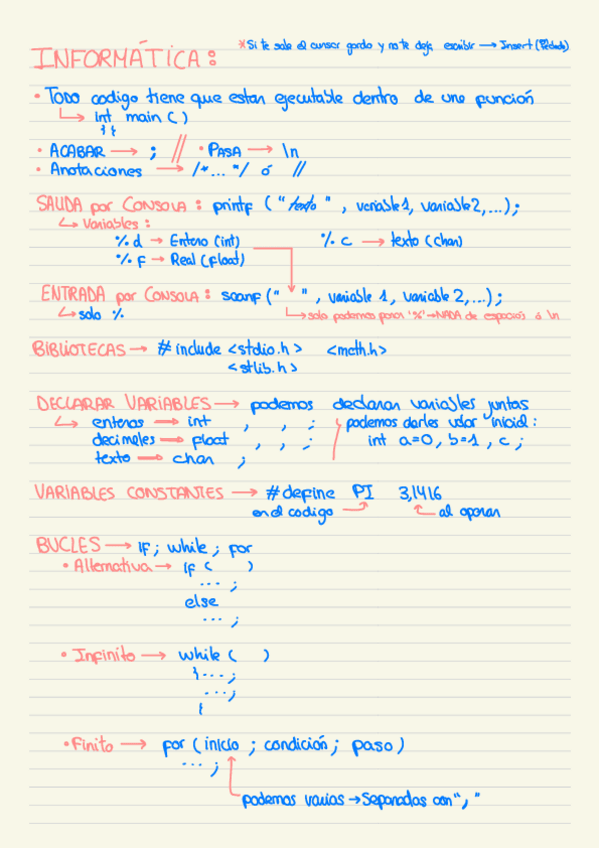 * Si te sale el cursor gordo y no te deja escribir → Insert (
INFORMÁTICA:
• TODO codigo tiene que estar ejecutable dentro de una función
↳ int main ( )
{ {
• ACABAR → ; // • PASA → \n
• Anotaciones → /*... */ ó //
SALIDA por CONSOLA : printf ( " texto " , variable1, variable2,...);
↳ Variables :
%. d → Entero (int) %. c → texto (char)
%. f → Real (float)
ENTRADA por CONSOLA : scanf (" " , variable 1, variable 2,...);
↳ solo % ↳ solo podemos poner '%' → NADA de espacios ó \n
BIBLIOTECAS → # include <stdio.h> <math.h>
<stlib.h>
DECLARAR VARIABLES → podemos declarar variables juntas
↳ enteros → int , , ; podemos darles valor inicial :
decimales → float , , ; int a=0, b=1, c ;
texto → char ;
VARIABLES CONSTANTES → # define PI 3,1416
en el codigo → ← al operar
BUCLES → IF ; while ; for
• Alternativa → if ( )
... ;
else
... ;
• Infinito → while ( )
{ ... ;
... ;
{
• Finito → for ( inicio ; condición ; paso )
... ;
podemos varias → Separadas con " , "